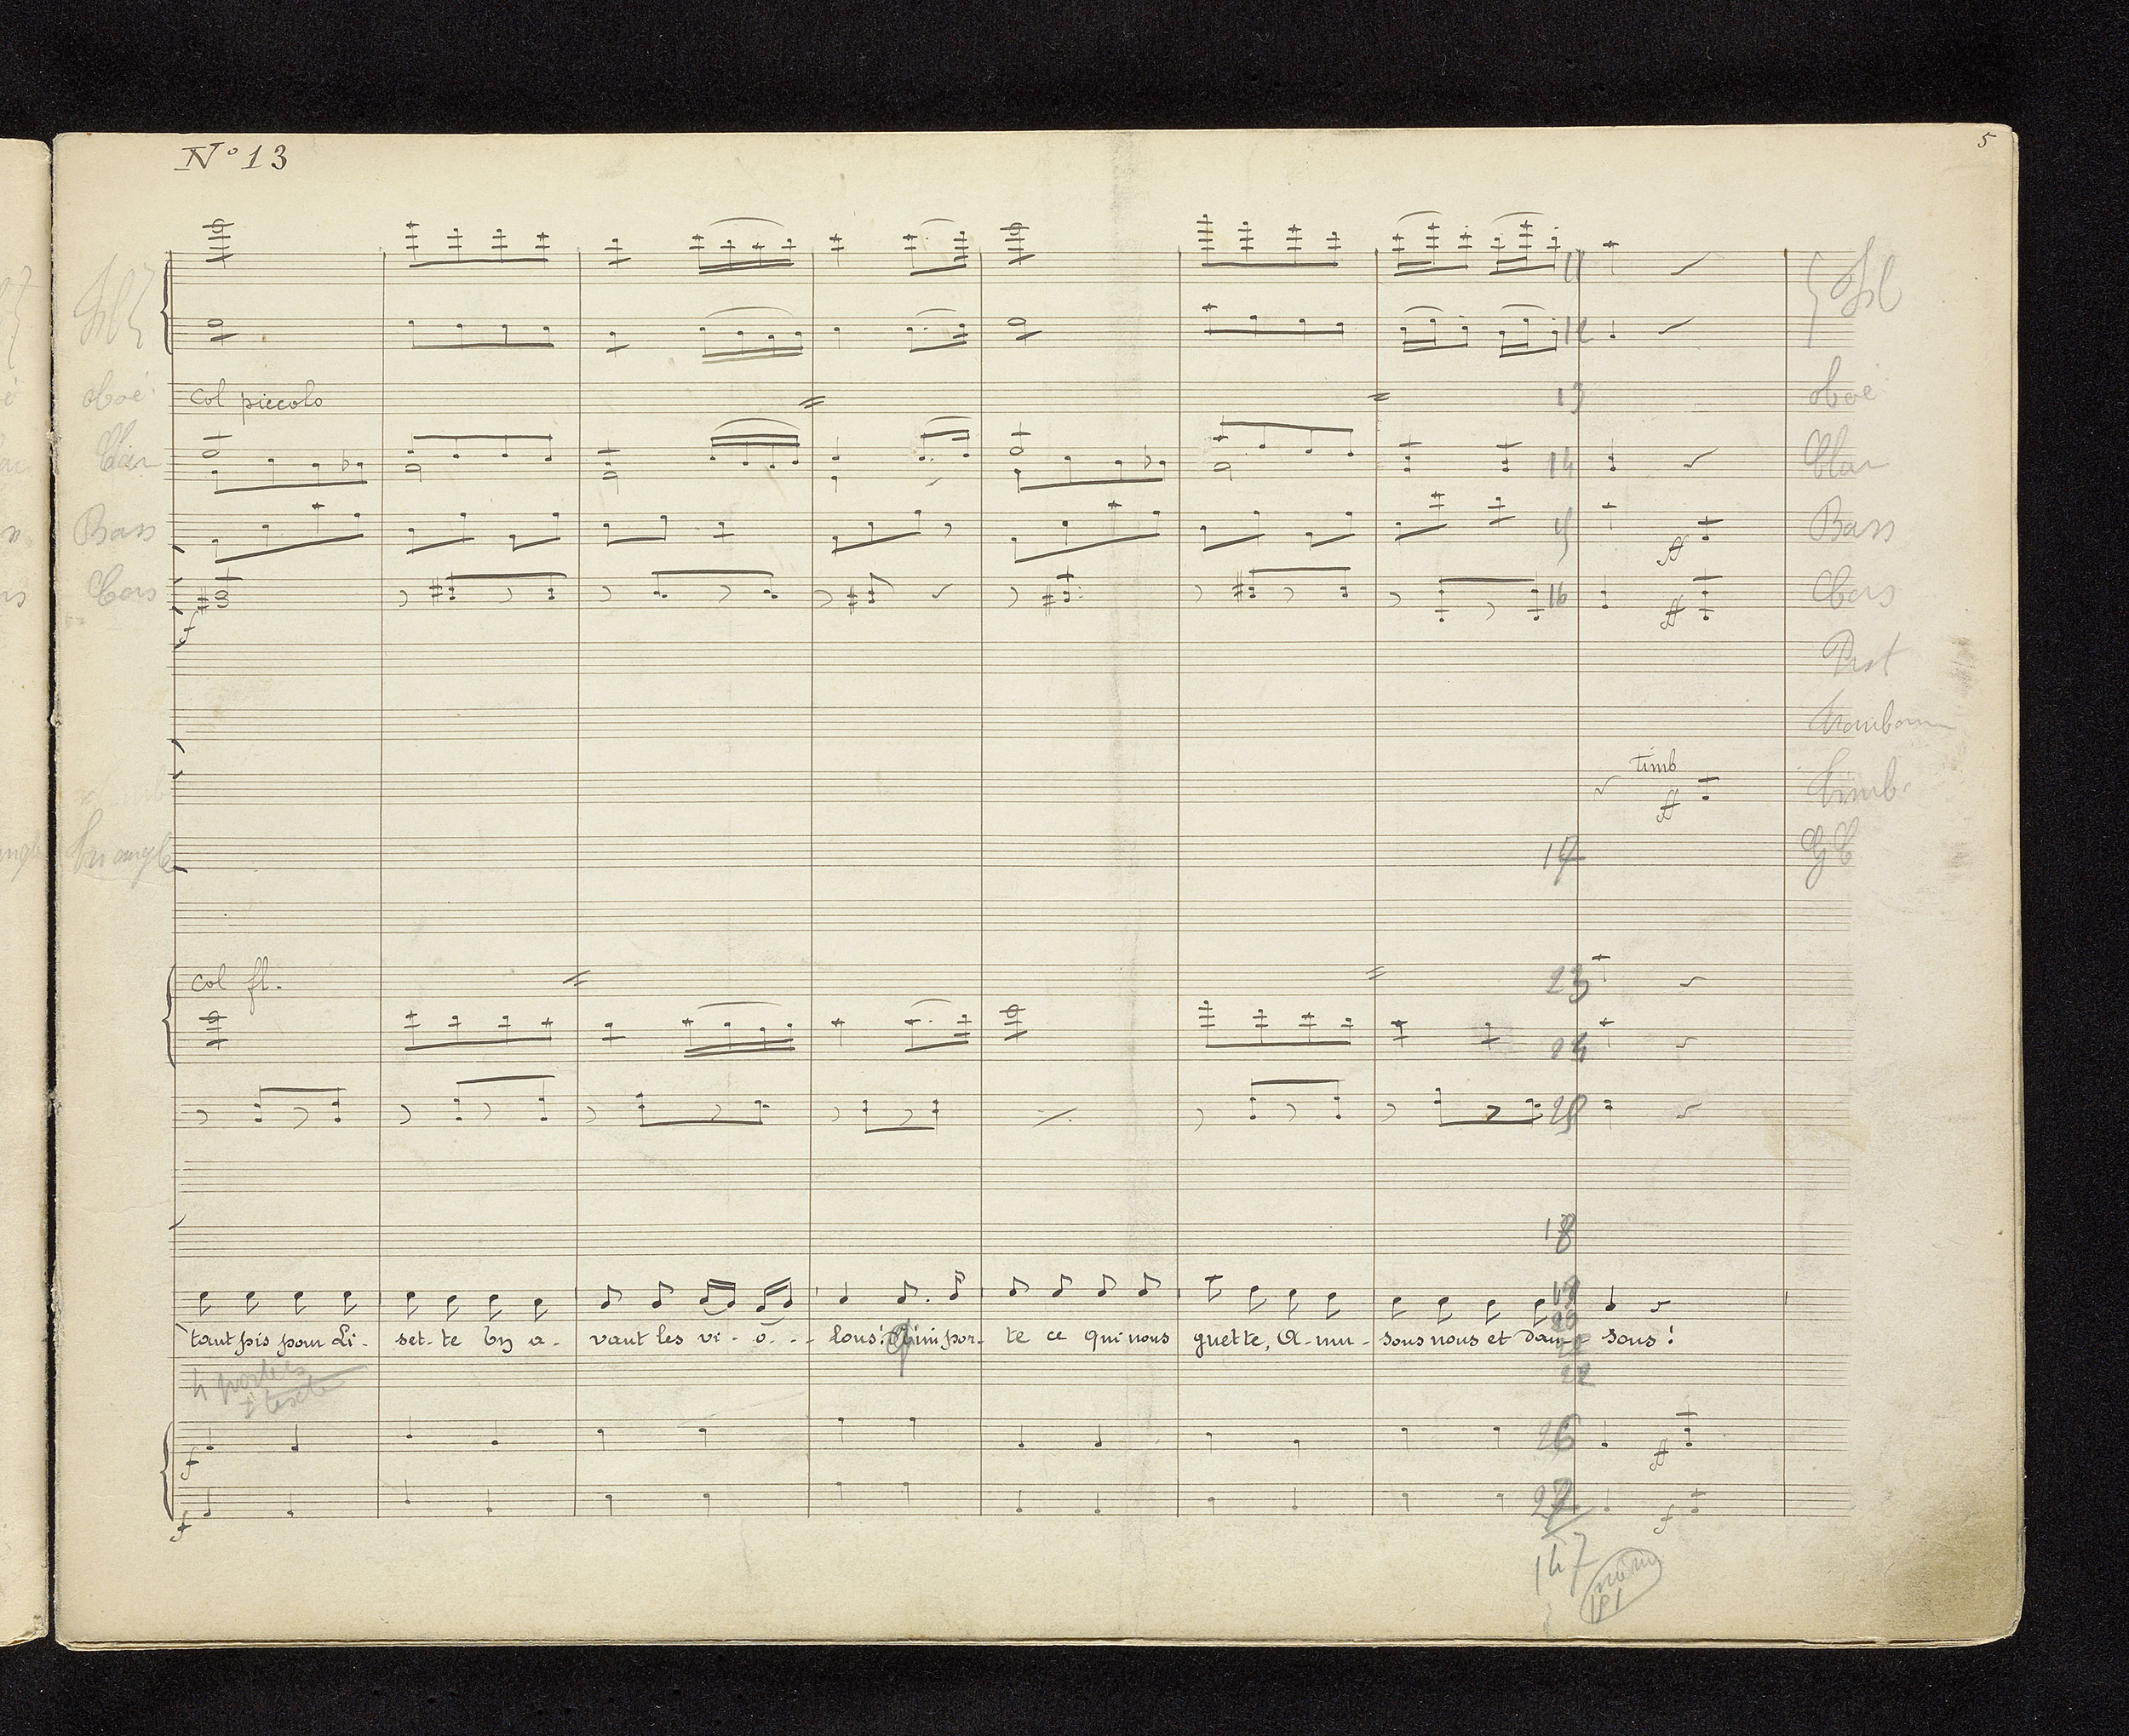 Nº 13
5
11
12
col piccolo
oboé
13
oboé
Clar
14
Clar
Bass
15
ff
Bass
Cors
f
16
ff
Cors
Pist
timb
ff
Timb.
Triangle
17
GC
col fl.
23
24
25
18
19
20
tant pis pour Li- set- te En a- vant les vi- o- - - lons! Qu'impor- te ce qui nous guette, A- mu- sons nous et dan- sons!
22
f
26
ff
f
27
f
147